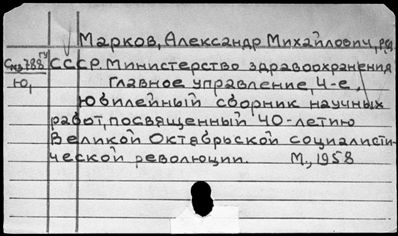 Марков, Александр Михайлович, ред.
СССР. Министерство здравоохранения
Главное управление, 4-е.
Ю, Юбилейный сборник научных
работ, посвященный 40-летию
Великой Октябрьской социалисти-
ческой революции. М., 1958